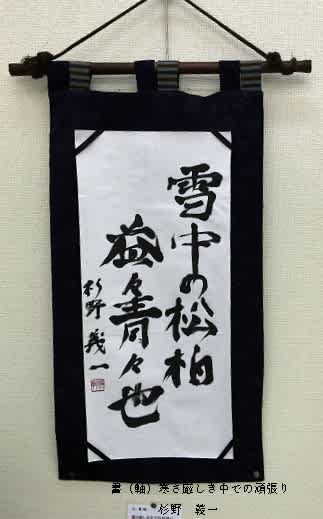 雪中の松柏
益々青々也
杉野義一
書(軸)寒さ厳しき中での頑張り
杉野 義一